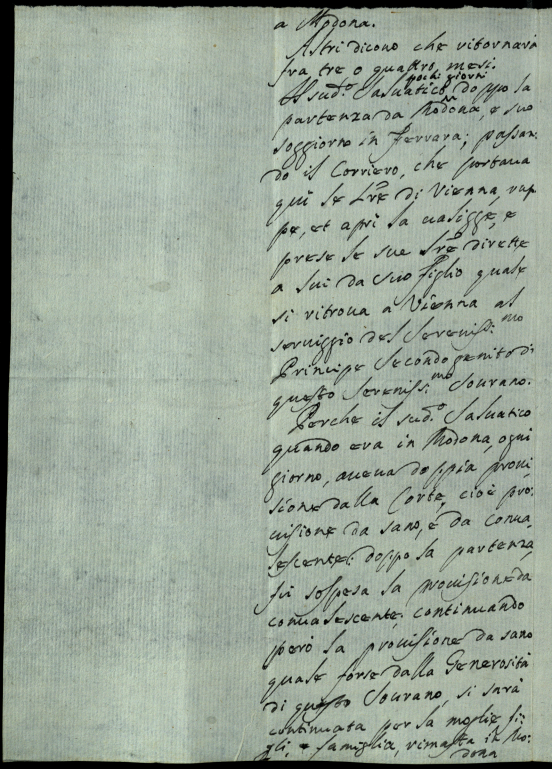 a Modona.
Altri dicono che ritornarà
fra tre o quattro mesi.
Il sud.o Salvatico pochi giorni doppo la
partenza da Modona, e suo
soggiorno in Ferrara; passan:
do il Corriero, che portava
qui le Lre di Vienna, rup
pe, et aprì la valigge, e
prese le sue Lre dirette
a lui da suo figlio quale
si ritrova a Vienna al
servizio del Sereniss:mo
Principe Secondogenito di
questo Sereniss:mo Sovrano.
Perche il sud.o Salvatico
quando era in Modona, ogni
giorno, aveva doppia provi
sione dalla Corte, cioè pro:
visione da sano, e da conva
lescente; doppo la partenza
fù sospesa la provisione da
convalescente, continuando
però la provisione da sano
quale forse dalla Generosità
di questo Sovrano si sarà
continuata per la moglie, fi:
gli, e famiglia, rimasta in Mo:
dona